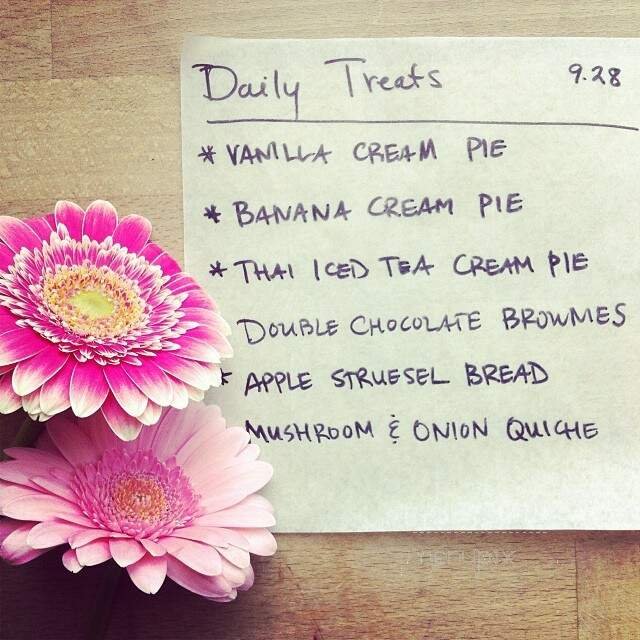 Daily Treats 9.28
* VANILLA CREAM PIE
* BANANA CREAM PIE
* THAI ICED TEA CREAM PIE
DOUBLE CHOCOLATE BROWNIES
* APPLE STRUESEL BREAD
MUSHROOM & ONION QUICHE